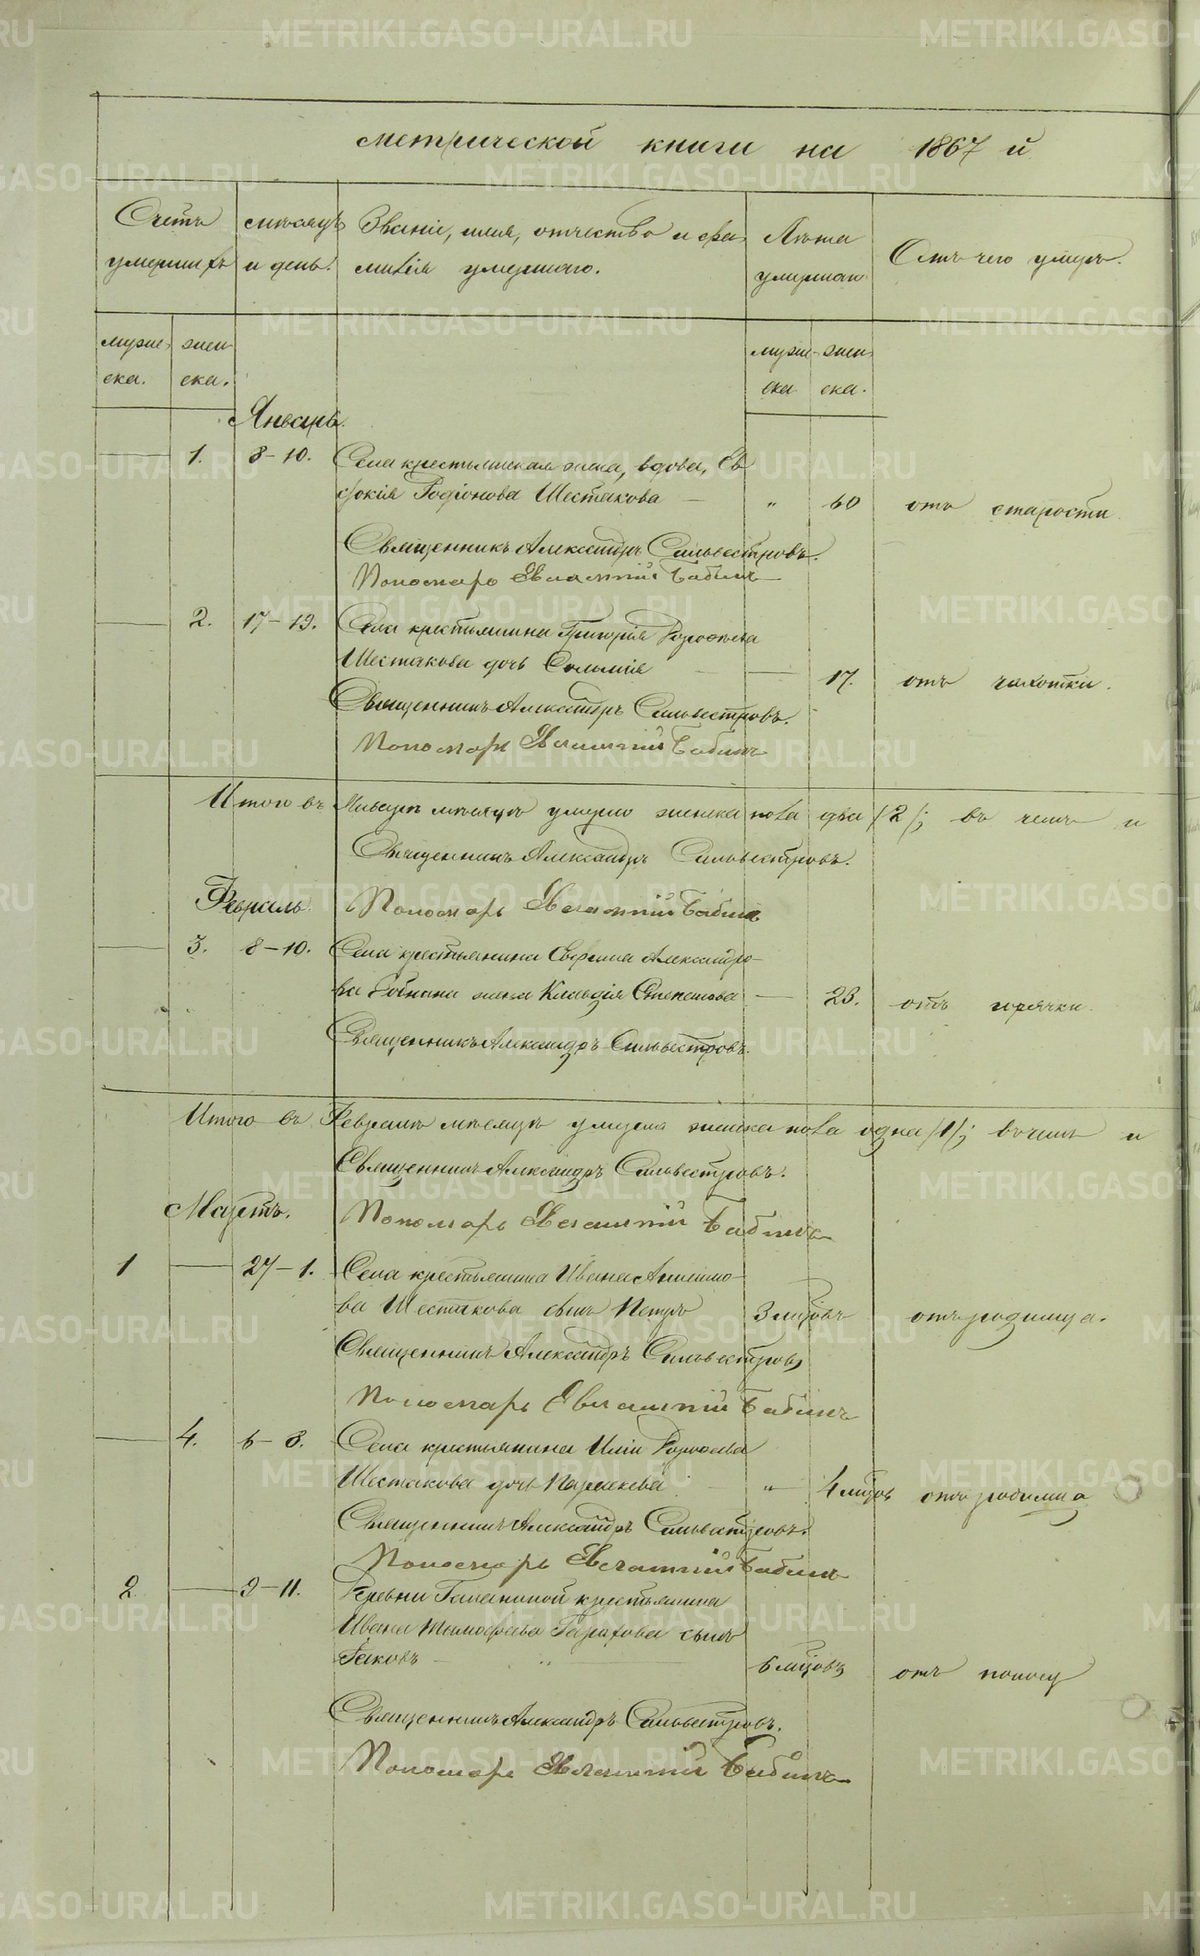 метрической книги на 1867 й
Счетъ умершихъ
мѣсяцъ и день.
Званіе, имя, отчество и фамилія умершаго.
Лѣта умершаго
Отъ чего умеръ.
мужеска. женска.
мужеска женска.
Январь.
1. 8-10. Села крестьянская жена, вдова, Ев
докія Родіонова Шестакова — „ 60 отъ старости
Священникъ Александръ Сильвестровъ.
Пономарь Евлампій Бабинъ
2. 17-19. Села крестьянина Григорія
Шестакова дочь 17. отъ чахотки.
Священникъ Александръ Сильвестровъ.
Пономарь Евлампій Бабинъ
Итого въ Январѣ мѣсяцѣ умерло женска пола два /2/; въ чемъ и
Священникъ Александръ Сильвестровъ.
Февраль. Пономарь Евлампій Бабинъ
3. 8-10. Села крестьянина Александро-
ва жена Клавдія Степанова — 23. отъ горячки.
Священникъ Александръ Сильвестровъ.
Итого въ Февралѣ мѣсяцѣ умерла женска пола одна /1/; въ чемъ и
Священникъ Александръ Сильвестровъ.
Мартъ. Пономарь Евлампій Бабинъ
1 27-1. Села крестьянина Ивана
ва Шестакова сынъ Петръ 3 мѣсяцовъ отъ родимца.
Священникъ Александръ Сильвестровъ
Пономарь Евлампій Бабинъ
4. 6-8. Села крестьянина Иліи
Шестакова дочь — „ 4 отъ родимца
Священникъ Александръ Сильвестровъ.
Пономарь Евлампій Бабинъ
2 9-11. Деревни крестьянина
Ивана Тимофеева сынъ
Яковъ — „ — 6 отъ поносу
Священникъ Александръ Сильвестровъ.
Пономарь Евлампій Бабинъ
METRIKI.GASO-URAL.RU